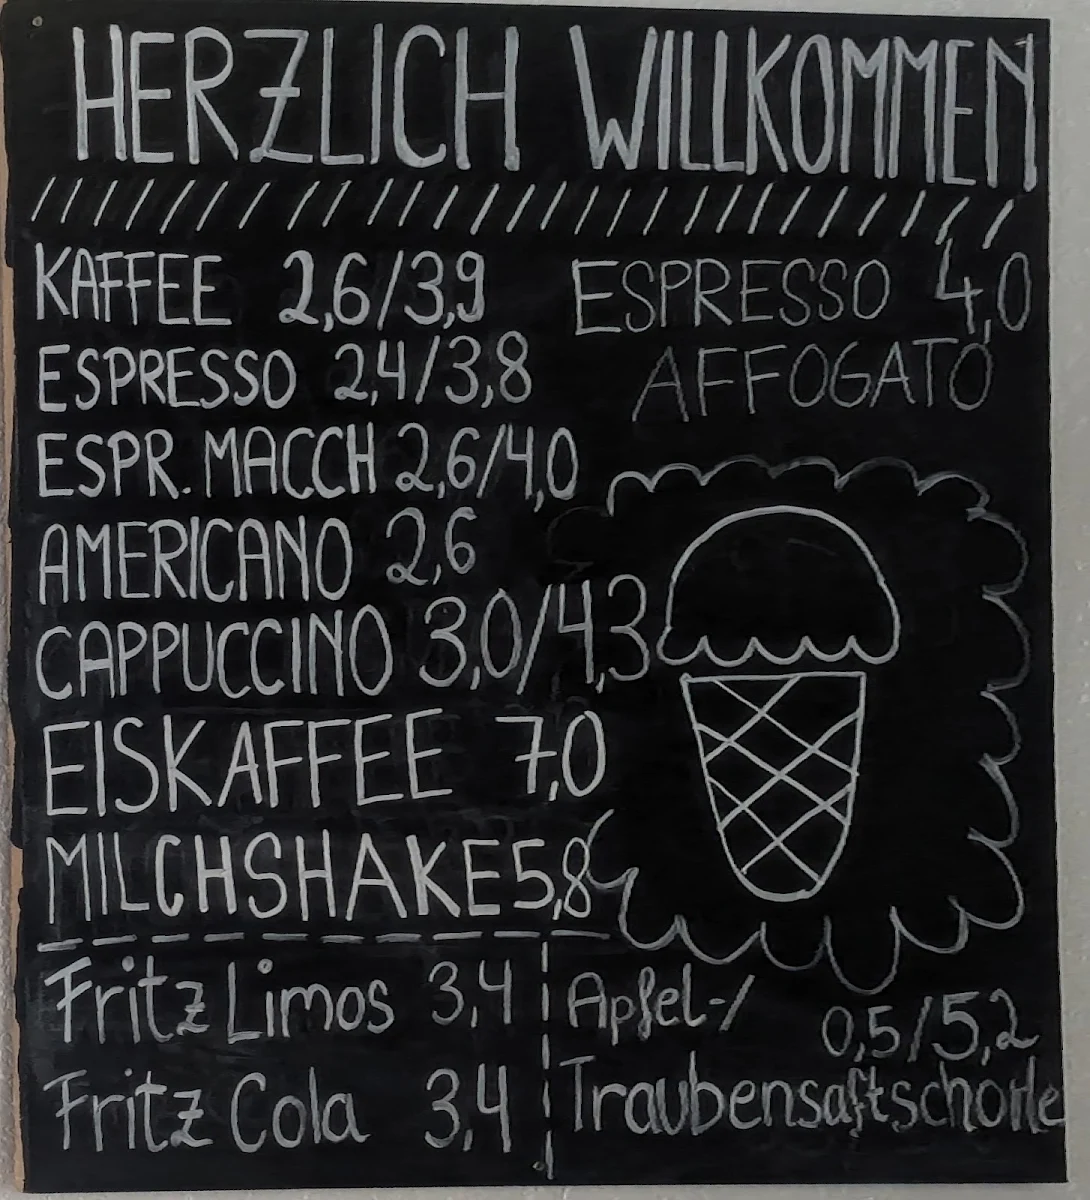 HERZLICH WILLKOMMEN
KAFFEE 2,6/3,9
ESPRESSO 2,4/3,8
ESPR. MACCH 2,6/4,0
AMERICANO 2,6
CAPPUCCINO 3,0/4,3
EISKAFFEE 7,0
MILCHSHAKE 5,8
ESPRESSO 4,0
AFFOGATO
Fritz Limos 3,4
Fritz Cola 3,4
Apfel-/ 0,5/5,2
Traubensaftschorle